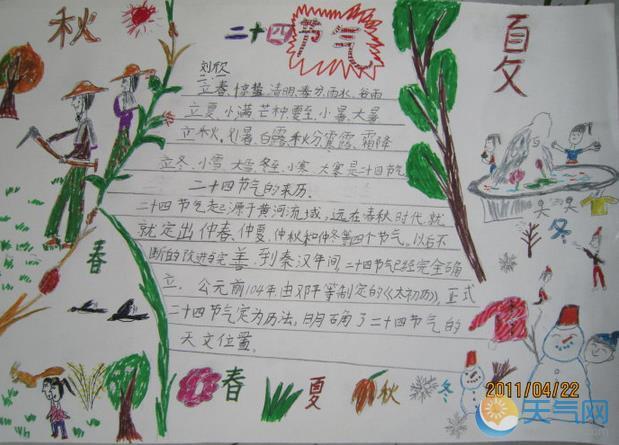 秋
二十四节气
夏
立春、惊蛰、清明、春分、雨水、谷雨
立夏、小满、芒种、夏至、小暑、大暑
立秋、暑、白露、秋分、寒露、霜降
立冬、小雪、大雪、冬至、小寒、大寒是二十四节气
二十四节气的来历.
二十四节气起源于黄河流域,远在春秋时代,就
就定出仲春、仲夏、仲秋和仲冬等四个节气。以后不
断的改进与完善,到秦汉年间,二十四节气已经完全确
立.公元前104年,由邓平等制定的《太初历》,正式
二十四节气定为历法,明确了二十四节气的
天文位置。
春
冬
春 夏 秋 冬
2011/04/22
天气网